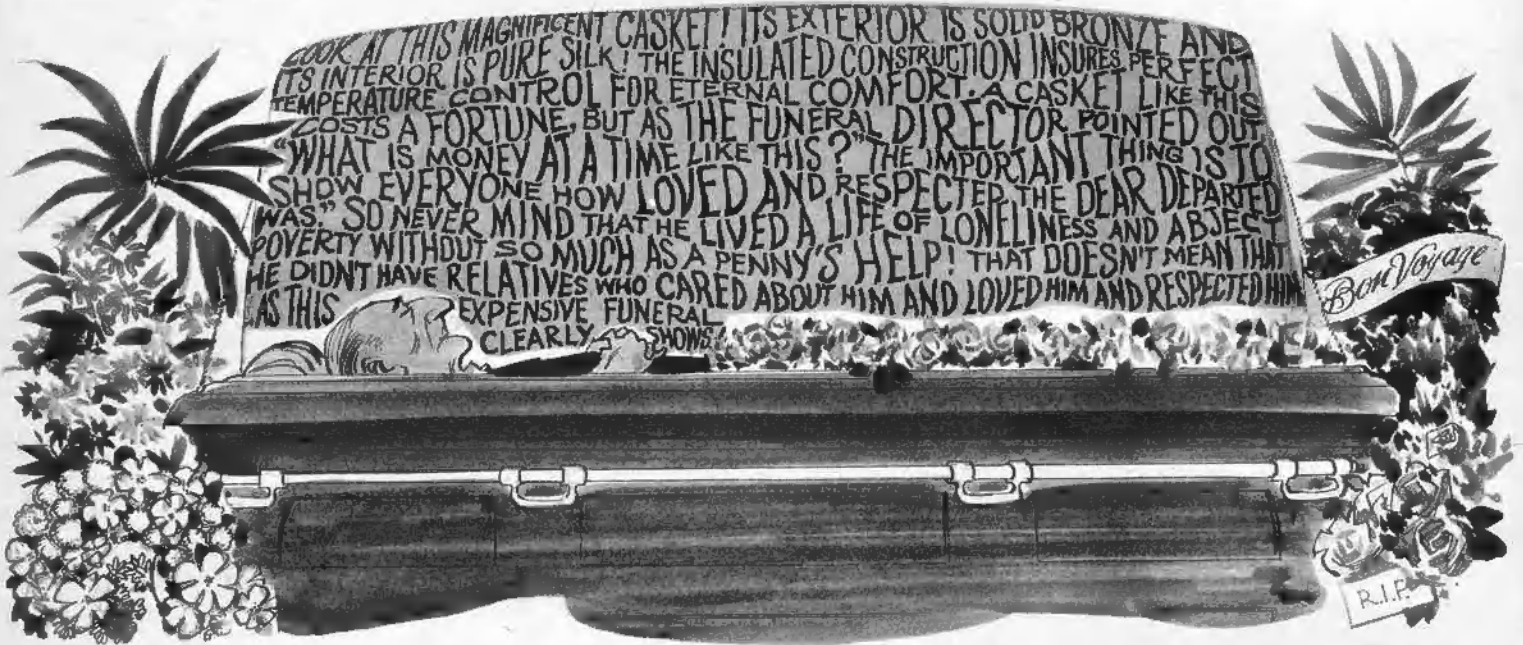 LOOK AT THIS MAGNIFICENT CASKET! ITS EXTERIOR IS SOLID BRONZE AND
ITS INTERIOR IS PURE SILK! THE INSULATED CONSTRUCTION INSURES PERFECT
TEMPERATURE CONTROL FOR ETERNAL COMFORT. A CASKET LIKE THIS
COSTS A FORTUNE, BUT AS THE FUNERAL DIRECTOR POINTED OUT,
"WHAT IS MONEY AT A TIME LIKE THIS?" THE IMPORTANT THING IS TO
SHOW EVERYONE HOW LOVED AND RESPECTED THE DEAR DEPARTED
WAS." SO NEVER MIND THAT HE LIVED A LIFE OF LONELINESS AND ABJECT
POVERTY WITHOUT SO MUCH AS A PENNY'S HELP! THAT DOESN'T MEAN THAT
HE DIDN'T HAVE RELATIVES WHO CARED ABOUT HIM AND LOVED HIM AND RESPECTED HIM
AS THIS EXPENSIVE FUNERAL
CLEARLY SHOWS.
Bon Voyage
R.I.P.